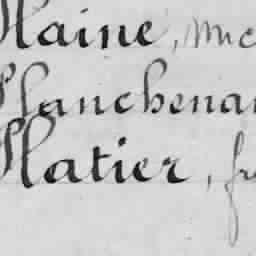 Plaine, Mic
Planchenau
Platier, fr